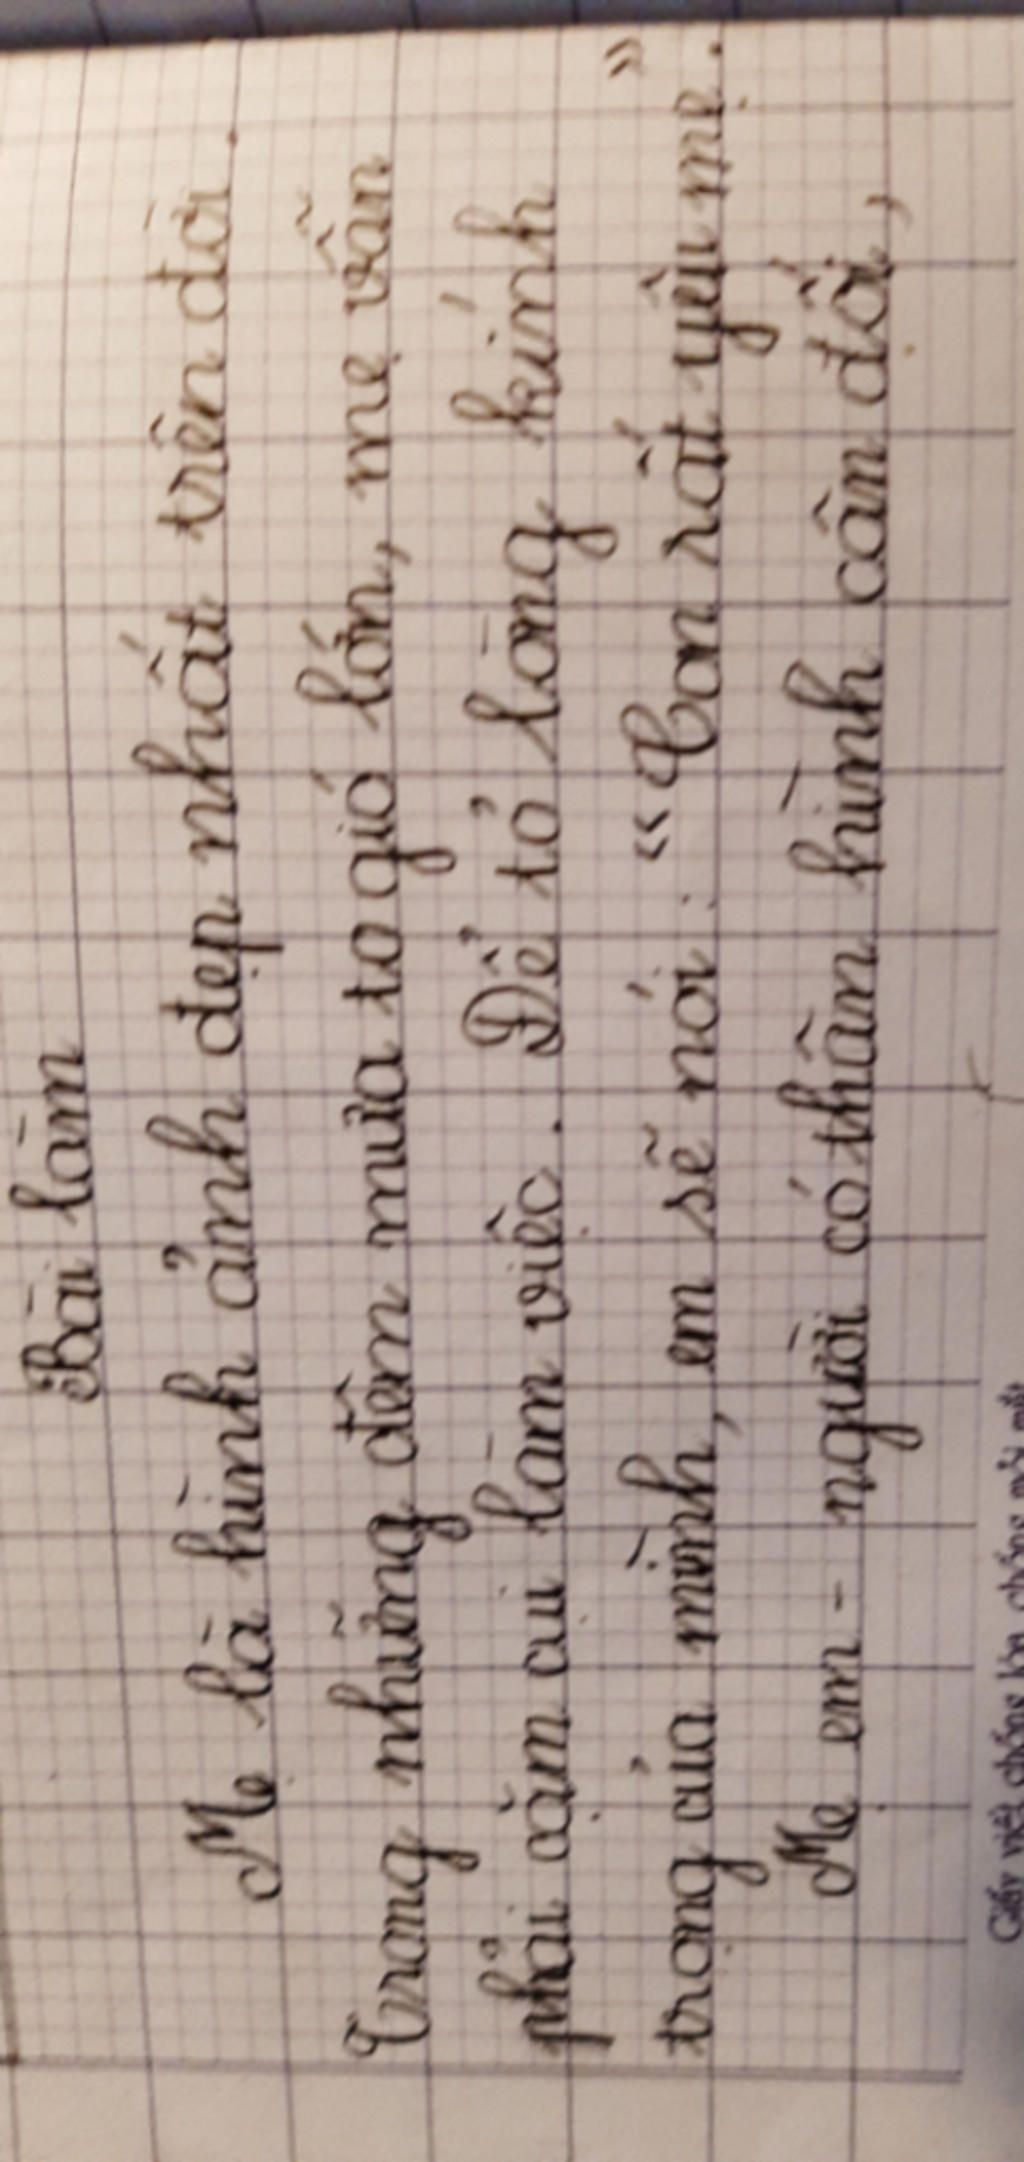 Bài làm
Mẹ là hình ảnh đẹp nhất trên đời.
Trong những đêm mưa to gió lớn, mẹ vẫn
phải cặm cụi làm việc. Để tỏ lòng kính
trọng của mình, em sẽ nói: "Con rất yêu mẹ."
Mẹ em - người có thân hình cân đối,
Giấy viết chống lóa chống mỏi mắt